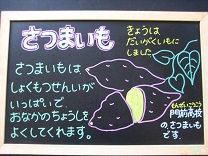 さつまいも
きょうは
だいがくいもに
しました。
さつまいもは
しょくもつせんいが
いっぱいで、
おなかのちょうしを
よくしてくれます。
門前高校
のさつまいも
です。